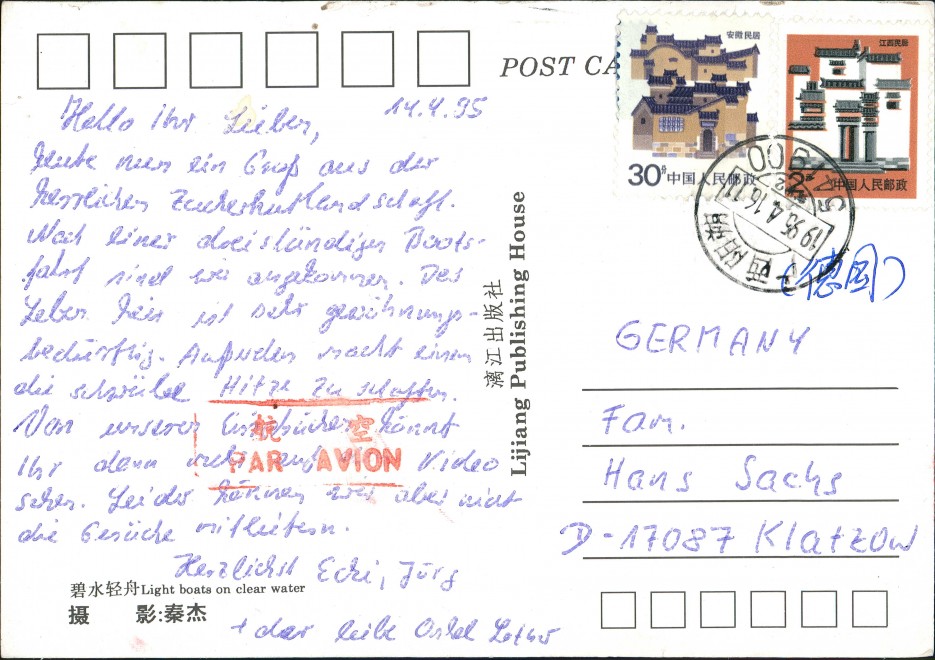 POST CA
安徽民居
30分 中国人民邮政
江西民居
中国人民邮政
1995.4.16.
14.4.95
Hello ihr Lieben,
heute nun ein Gruß aus der
herrlichen Zuckerhutlandschaft.
Nach einer dreistündigen Boots-
fahrt sind wir angekommen. Das
Leben hier ist sehr gewöhnungs-
bedürftig. Außerdem macht einem
die schwüle Hitze zu schaffen.
Von unseren Eindrücken könnt
Ihr dann auf Video
sehen. Leider können wir aber nicht
die Gerüche mitliefern.
Herzlichst Ecki, Jörg
+ der liebe Onkel
航空
PAR AVION
碧水轻舟 Light boats on clear water
摄 影:秦杰
漓江出版社
Lijiang Publishing House
(德国)
GERMANY
Fam.
Hans Sachs
D-17087 Klatzow